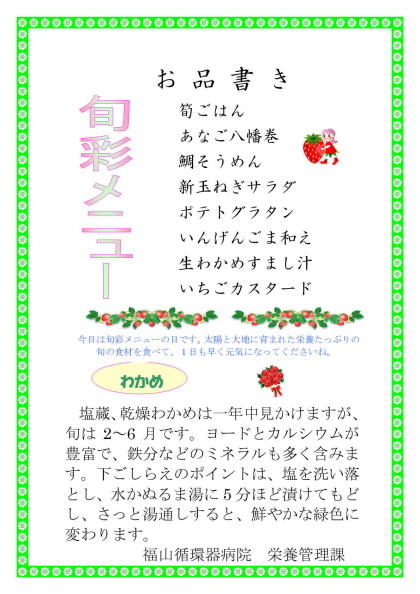 お品書き
旬彩メニュー
筍ごはん
あなご八幡巻
鯛そうめん
新玉ねぎサラダ
ポテトグラタン
いんげんごま和え
生わかめすまし汁
いちごカスタード
今日は旬彩メニューの日です。太陽と大地に育まれた栄養たっぷりの
旬の食材を食べて、1日も早く元気になってくださいね。
わかめ
塩蔵、乾燥わかめは一年中見かけますが、
旬は 2〜6 月です。ヨードとカルシウムが
豊富で、鉄分などのミネラルも多く含みま
す。下ごしらえのポイントは、塩を洗い落
とし、水かぬるま湯に5分ほど漬けてもど
し、さっと湯通しすると、鮮やかな緑色に
変わります。
福山循環器病院 栄養管理課